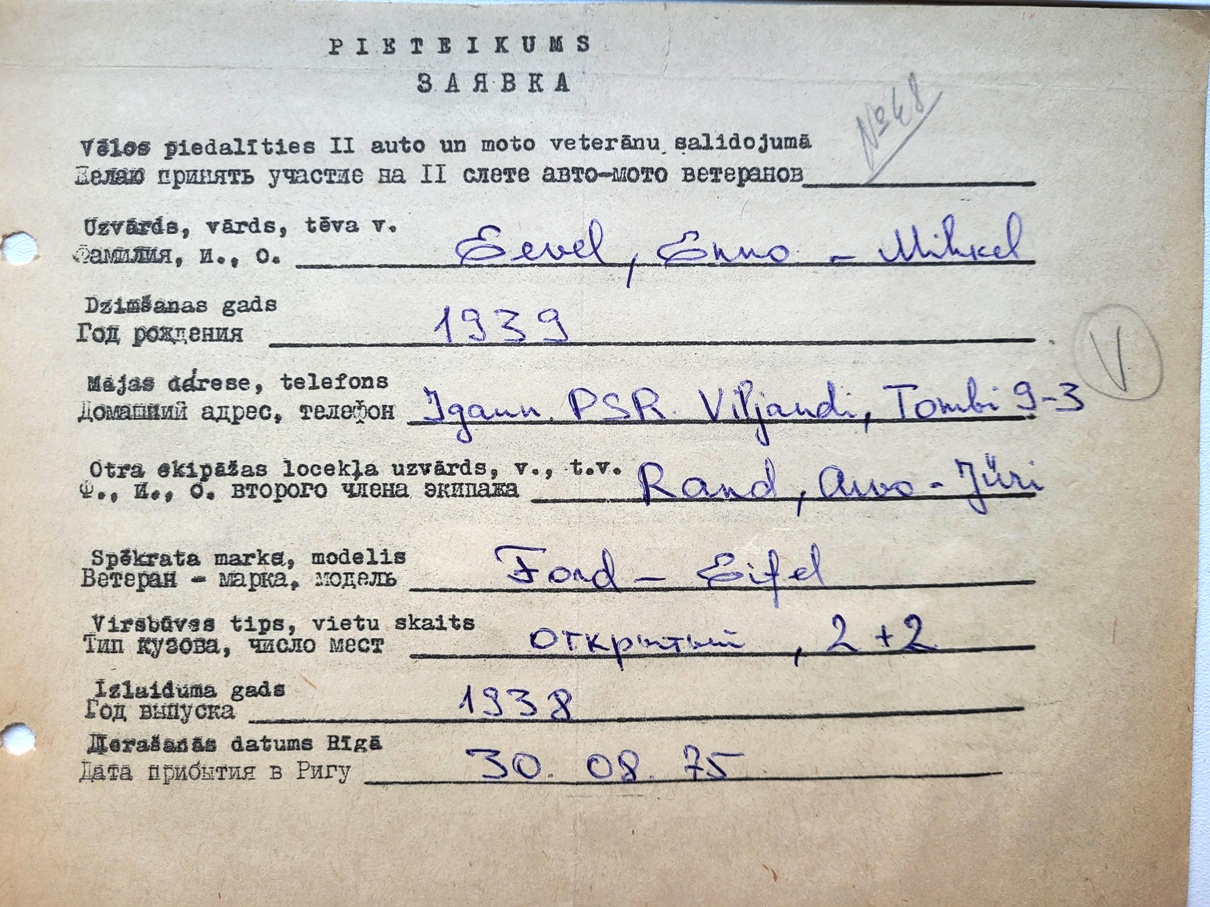 PIETEIKUMS
ЗАЯВКА
№48
Vēlos piedalīties II auto un moto veterānu salidojumā
Желаю принять участие на II слете авто-мото ветеранов
Uzvārds, vārds, tēva v.
Фамилия, и., о. Eevel, Enno - Mihkel
Dzimšanas gads
Год рождения 1939
V
Mājas adrese, telefons
Домашний адрес, телефон Igaun. PSR. Viljandi, Tombi 9-3
Otra ekipāžas locekļa uzvārds, v., t.v.
Ф., И., О. второго члена экипажа Rand, Arvo - Jüri
Spēkrata marka, modelis
Ветеран - марка, модель Ford - Eifel
Virsbūves tips, vietu skaits
Тип кузова, число мест открытый, 2+2
Izlaiduma gads
Год выпуска 1938
Ierašanās datums Rīgā
Дата прибытия в Ригу 30. 08. 75